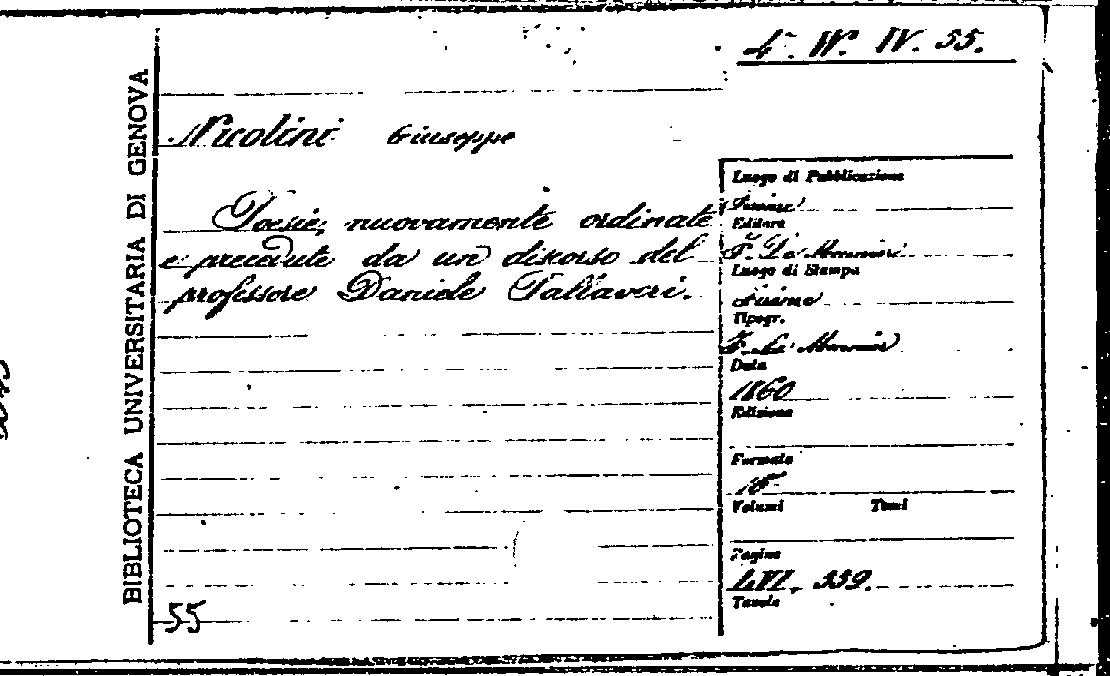 4ª. W. IV. 55.
BIBLIOTECA UNIVERSITARIA DI GENOVA
Nicolini Giuseppe
Poesie, nuovamente ordinate
e precedute da un discorso del
professore Daniele Pallaveri.
55
Luogo di Pubblicazione
Firenze
Editore
F. Le Monnier
Luogo di Stampa
Firenze
Tipogr.
F. Le Monnier
Data
1860
Edizione
Formato
16º
Volumi Tomi
Pagine
LVI, 339.
Tavole